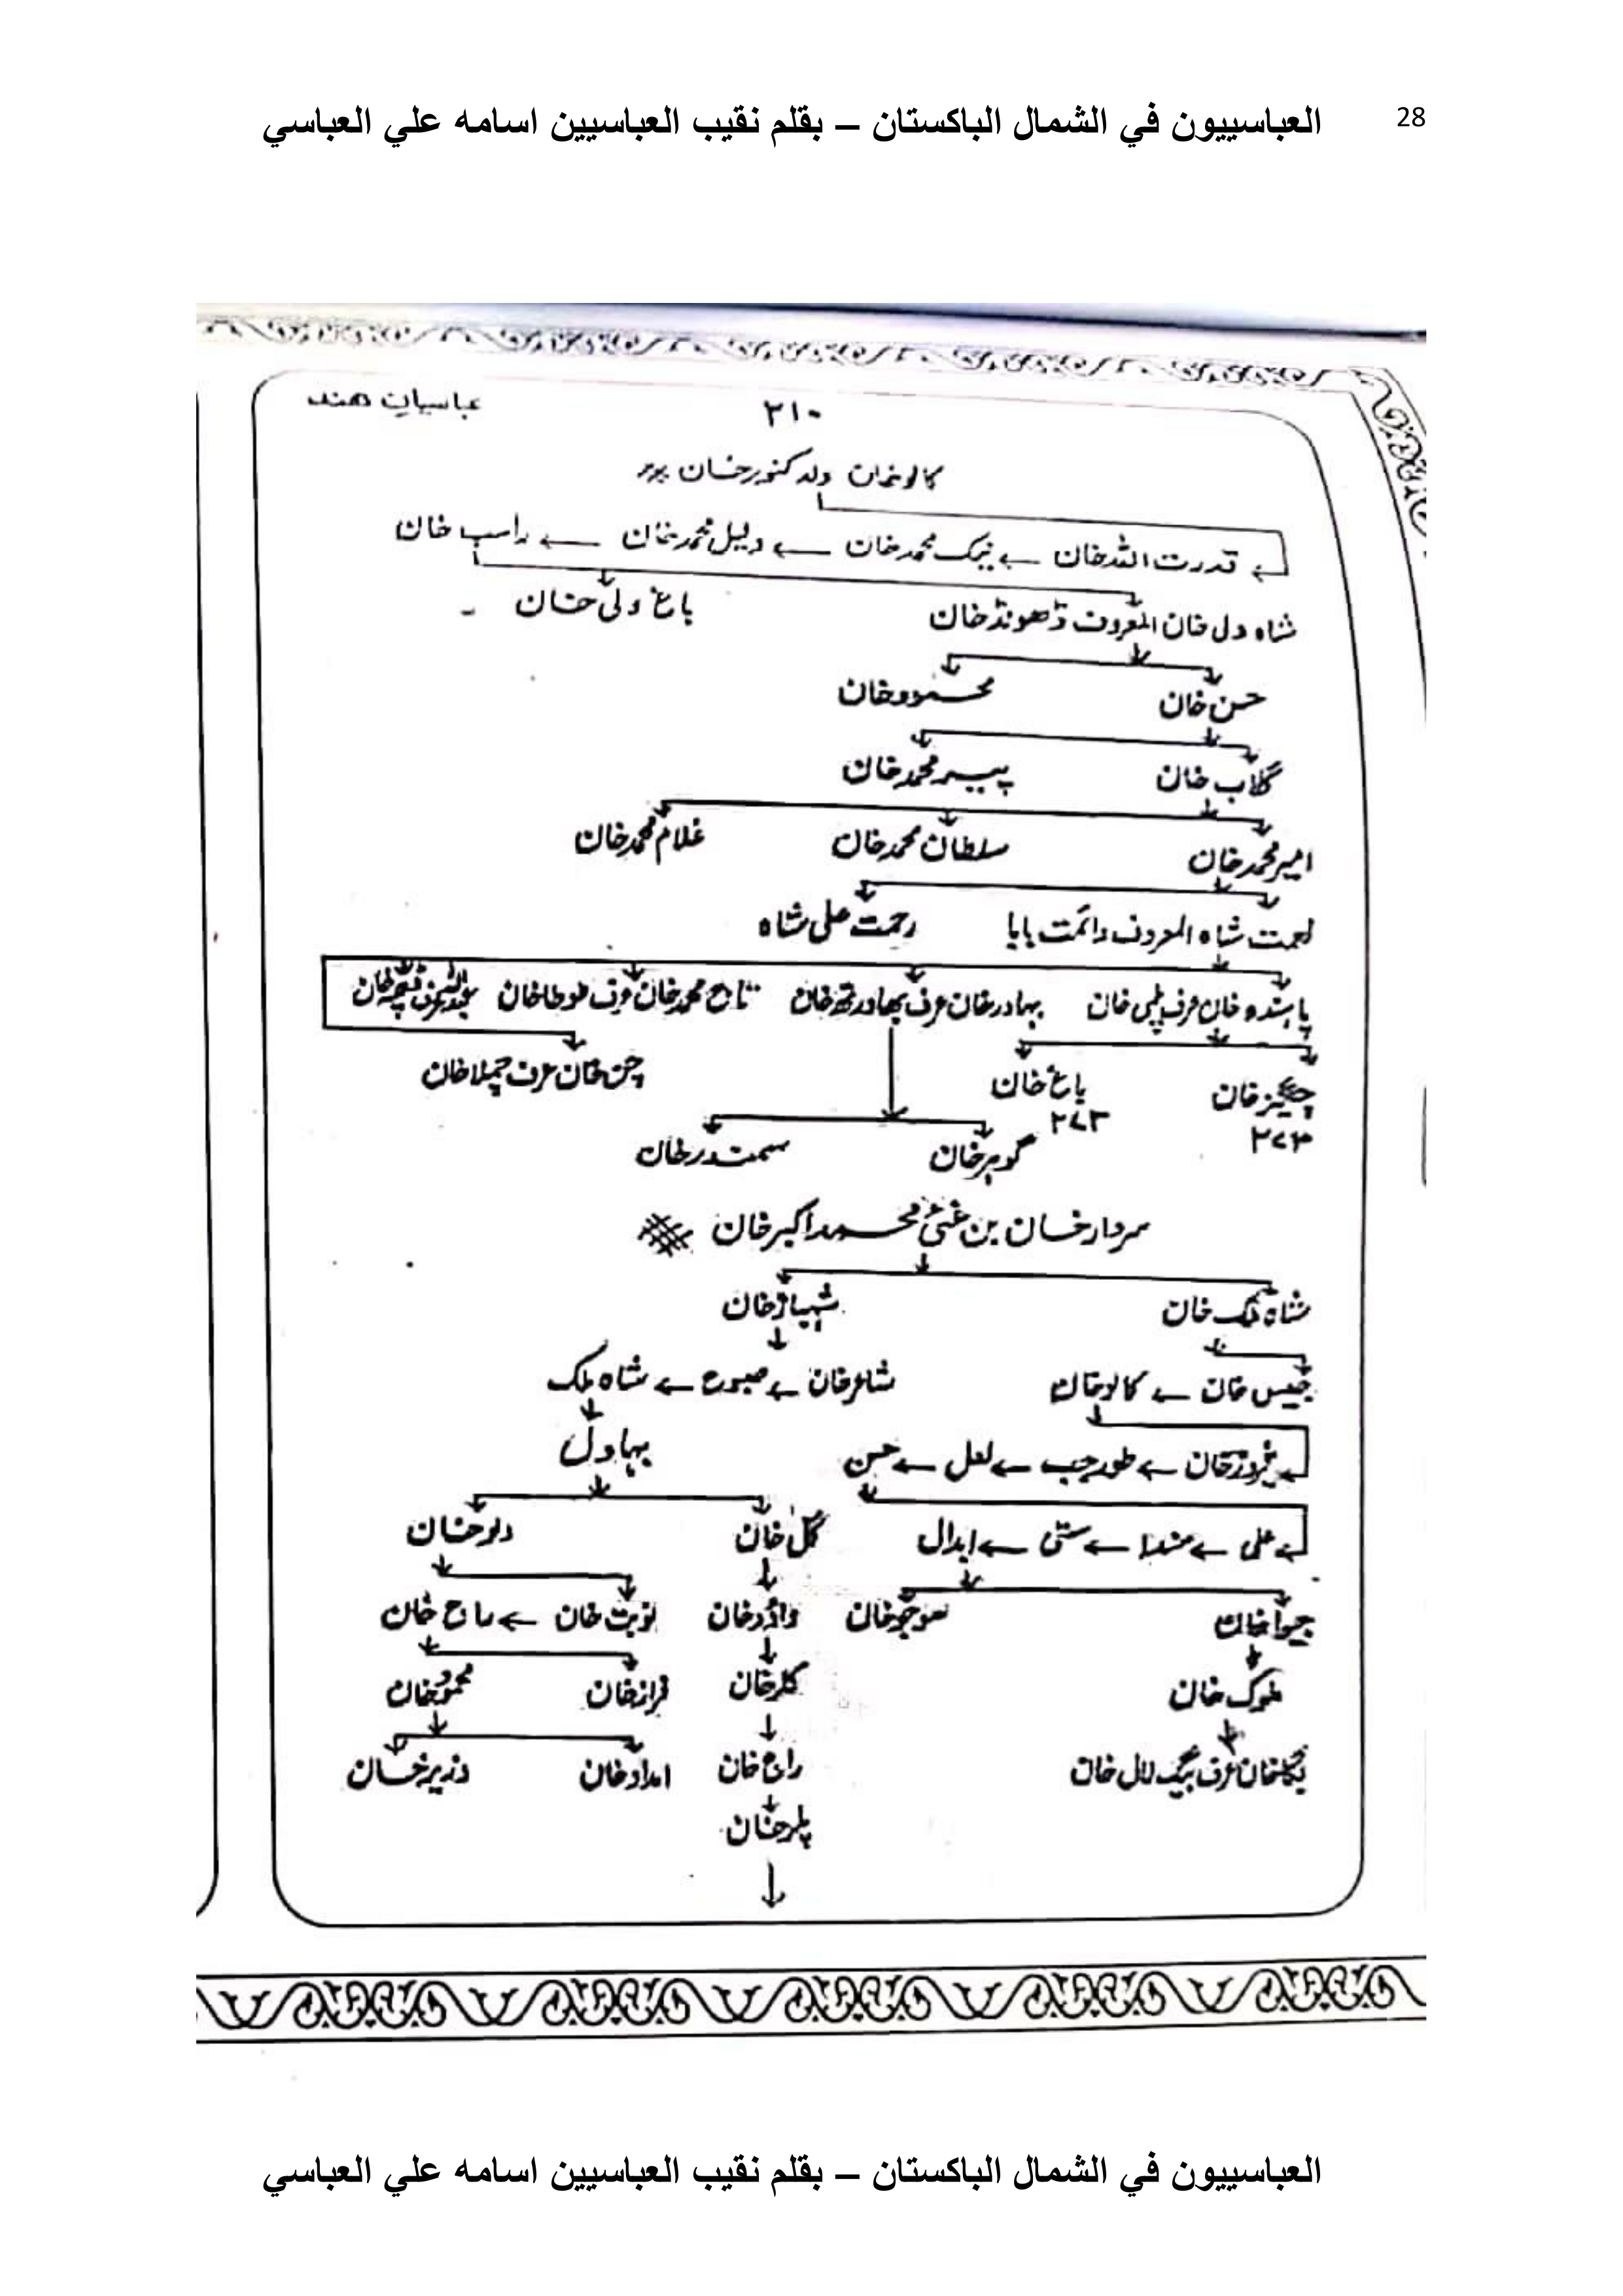 28
العباسييون في الشمال الباكستان – بقلم نقيب العباسيين اسامه علي العباسي
۲۱۰ عباسیان ھند
کالوخان ولد کنورخان
قدرت اللہ خان ← نیک محمد خان ← دلیل محمد خان ← راسب خان
شاہ ولی خان المعروف ڈھونڈ خان باغ ولی خان
حسن خان محمود خان
گلاب خان پیر محمد خان
امیر محمد خان سلطان محمد خان غلام محمد خان
نعمت شاہ المعروف دائمت بابا رحمت علی شاہ
پائندہ خان عرف پلمی خان بہادر خان عرف تاج محمد خان عرف طوطا خان
چنگیز خان باغ خان چن خان عرف
۲۷۳ ۲۷۳
گوہر خان سمندر خان
سردار خان بن غنی محمد اکبر خان
شاہ ملک خان شہباز خان
جیس خان ← کالو خان شاعر خان ← ← شاہ ملک
بہادل
فیروز خان ← ← لعل ← حسن
علی ← مندا ← ستی ← ابدال گل خان دلو خان
جیوا خان موجو خان داؤد خان نوبت خان ← ماح خان
ملوک خان گلر خان فراز خان محمود خان
یکا خان عرف بیگ لال خان راج خان امداد خان وزیر خان
پلر خان
العباسييون في الشمال الباكستان – بقلم نقيب العباسيين اسامه علي العباسي